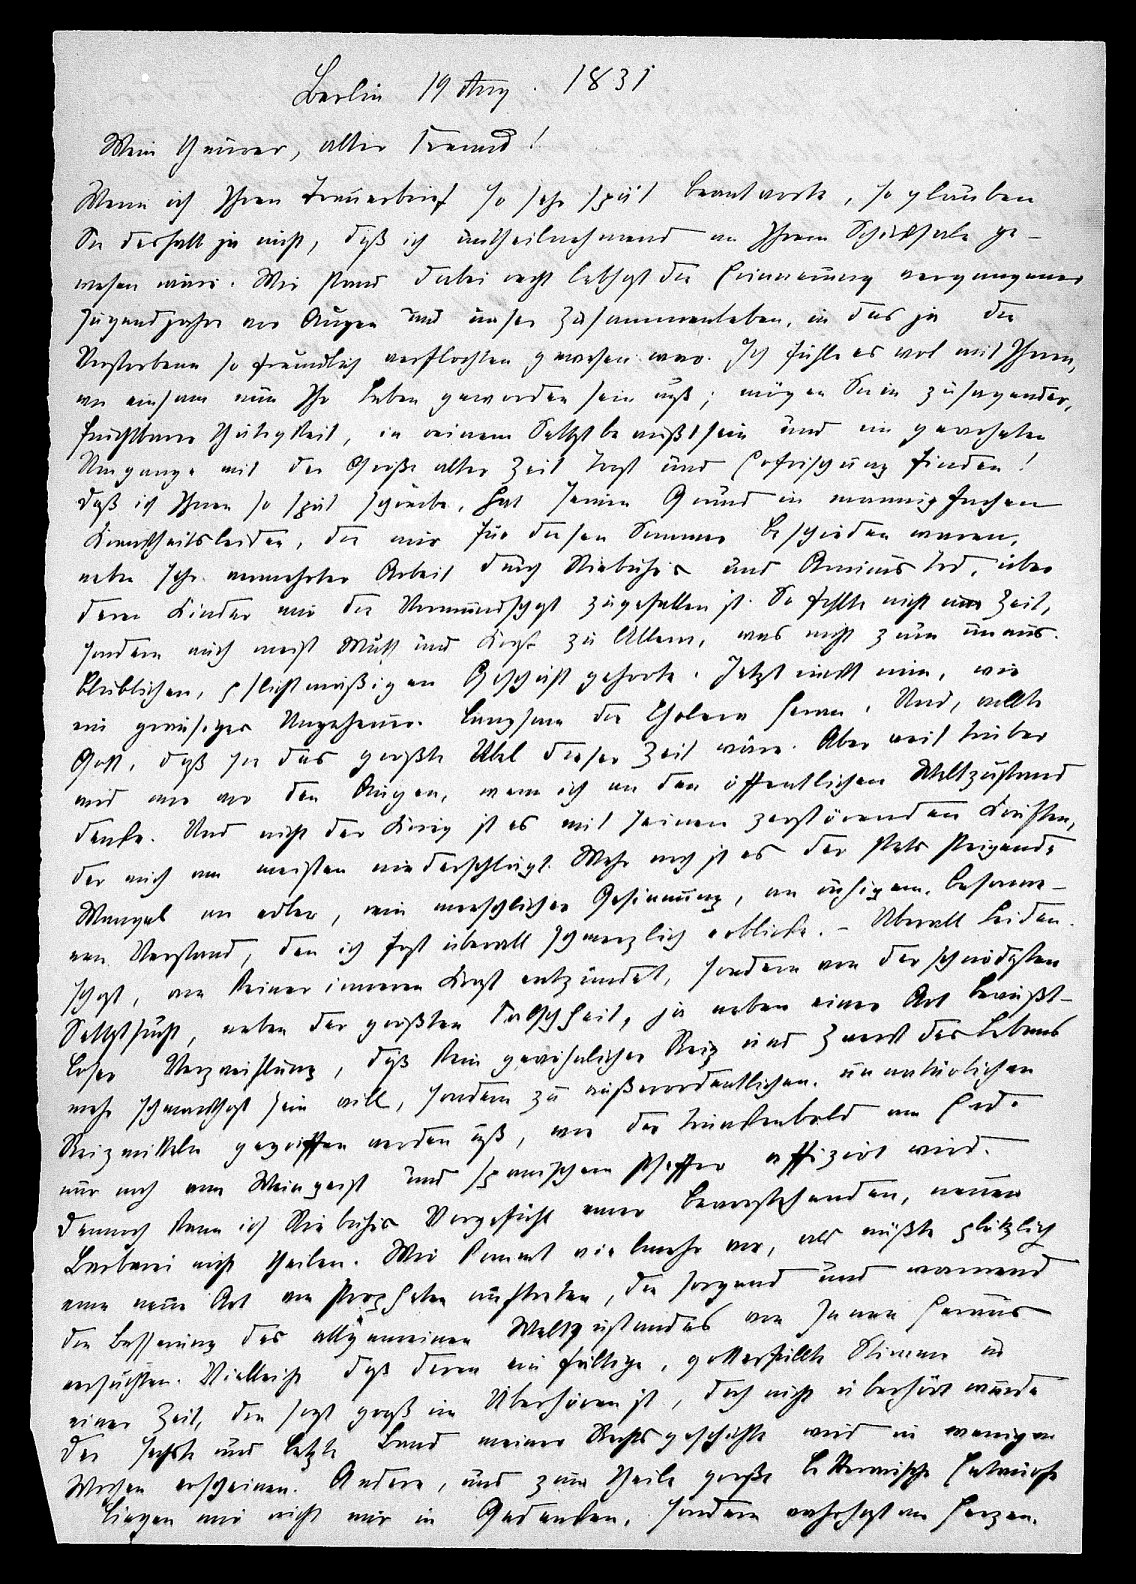 Berlin 19 Aug. 1831
Mein theurer, alter Freund!
Wenn ich Ihren Trauerbrief so sehr spät beantworte, so glauben
Sie deshalb ja nicht, daß ich untheilnehmend an Ihrem Schicksale ge-
wesen wäre. Mir stand dabei recht lebhaft die Erinnerung vergangener
Jugendjahre vor Augen und unser Zusammenleben, in das ja die
Verstorbene so freundlich verflochten gewesen war. Ich fühle es wol mit Ihnen,
wie einsam nun Ihr Leben geworden sein muß; mögen Sie in zusagender,
fruchtbarer Thätigkeit, in reinem Selbstbewußtsein und im gewohnten
Umgange mit der Größe alter Zeit Trost und Erfrischung finden!
Daß ich Ihnen so spät schreibe, hat seinen Grund in mannigfachen
Krankheitsleiden, die mir für diesen Sommer beschieden waren,
neben sehr vermehrter Arbeit durch Niebuhrs und Arnims Tod, über
deren Kinder mir die Vormundschaft zugefallen ist. So fehlte nicht nur Zeit,
sondern auch meist Muth und Kraft zu Allem, was nicht zum unaus-
bleiblichen, pflichtmäßigen Geschäft gehörte. Jetzt rückt nun, wie
ein grausiges Ungeheuer langsam die Cholera heran. Und, wollte
Gott, daß sie das größte Übel dieser Zeit wäre. Aber weit trüber
wird mir vor den Augen, wenn ich an den öffentlichen Weltzustand
denke. Und nicht der Krieg ist es mit seinen zerstörenden Kräften,
der mich am meisten niederschlägt. Mehr noch ist es der stets steigende
Mangel an edler, rein menschlicher Gesinnung, an ruhigem, besonne-
nen Verstand, den ich fast überall schmerzlich erblicke. – Überall Leiden-
schaft, von keiner inneren Kraft entzündet, sondern von der schnödesten
Selbstsucht, neben der größten Falschheit, ja neben einer Art bewußt-
loser Verzweiflung, daß kein gewöhnlicher Reiz und Zweck des Lebens
mehr schmackhaft sein will, sondern zu außerordentlichen, unnatürlichen
Reizmitteln gegriffen werden muß, wie der Trunkenbold am Ende
nur noch vom Weingeist und spanischem Pfeffer affizirt wird.
Dennoch kann ich Niebuhrs Vorgesicht einer bevorstehenden, neuen
Barbarei nicht theilen. Mir kommt vielmehr vor, als müßte plötzlich
eine neue Art von Propheten auftreten, die sorgend und warnend
die Besserung des allgemeinen Weltzustandes von Innen heraus
versuchten. Vielleicht daß deren einfältige, gotterfüllte Stimme in
einer Zeit, die sonst groß im Überhören ist, doch nicht überhört würde
Der sechste und letzte Band meiner Rechtsgeschichte wird in wenigen
Wochen erscheinen. Andere, und zum Theile große litterarische Entwürfe
liegen mir nicht nur in Gedanken, sondern wahrhaft am Herzen.